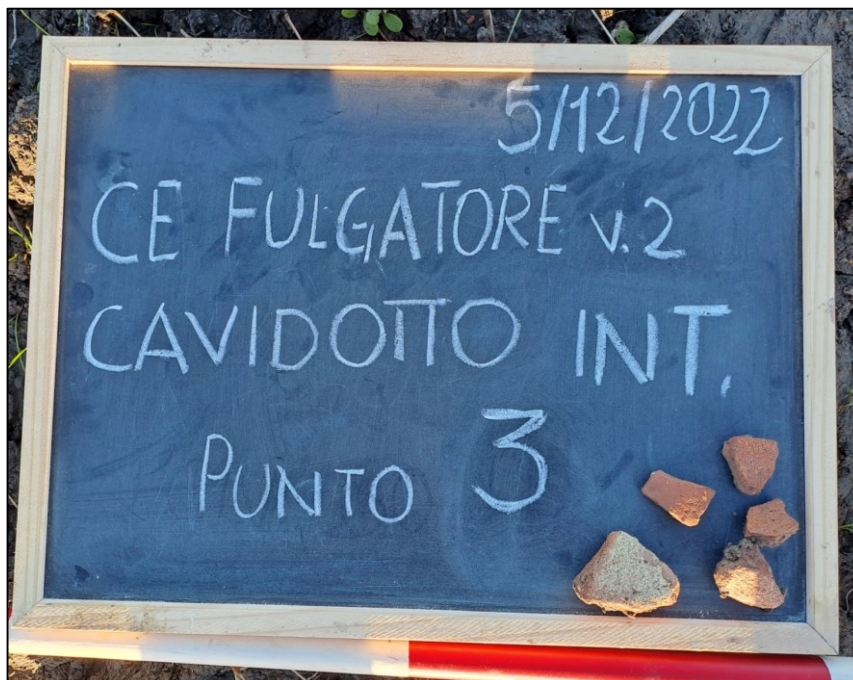 5/12/2022
CE FULGATORE v.2
CAVIDOTTO INT.
PUNTO 3